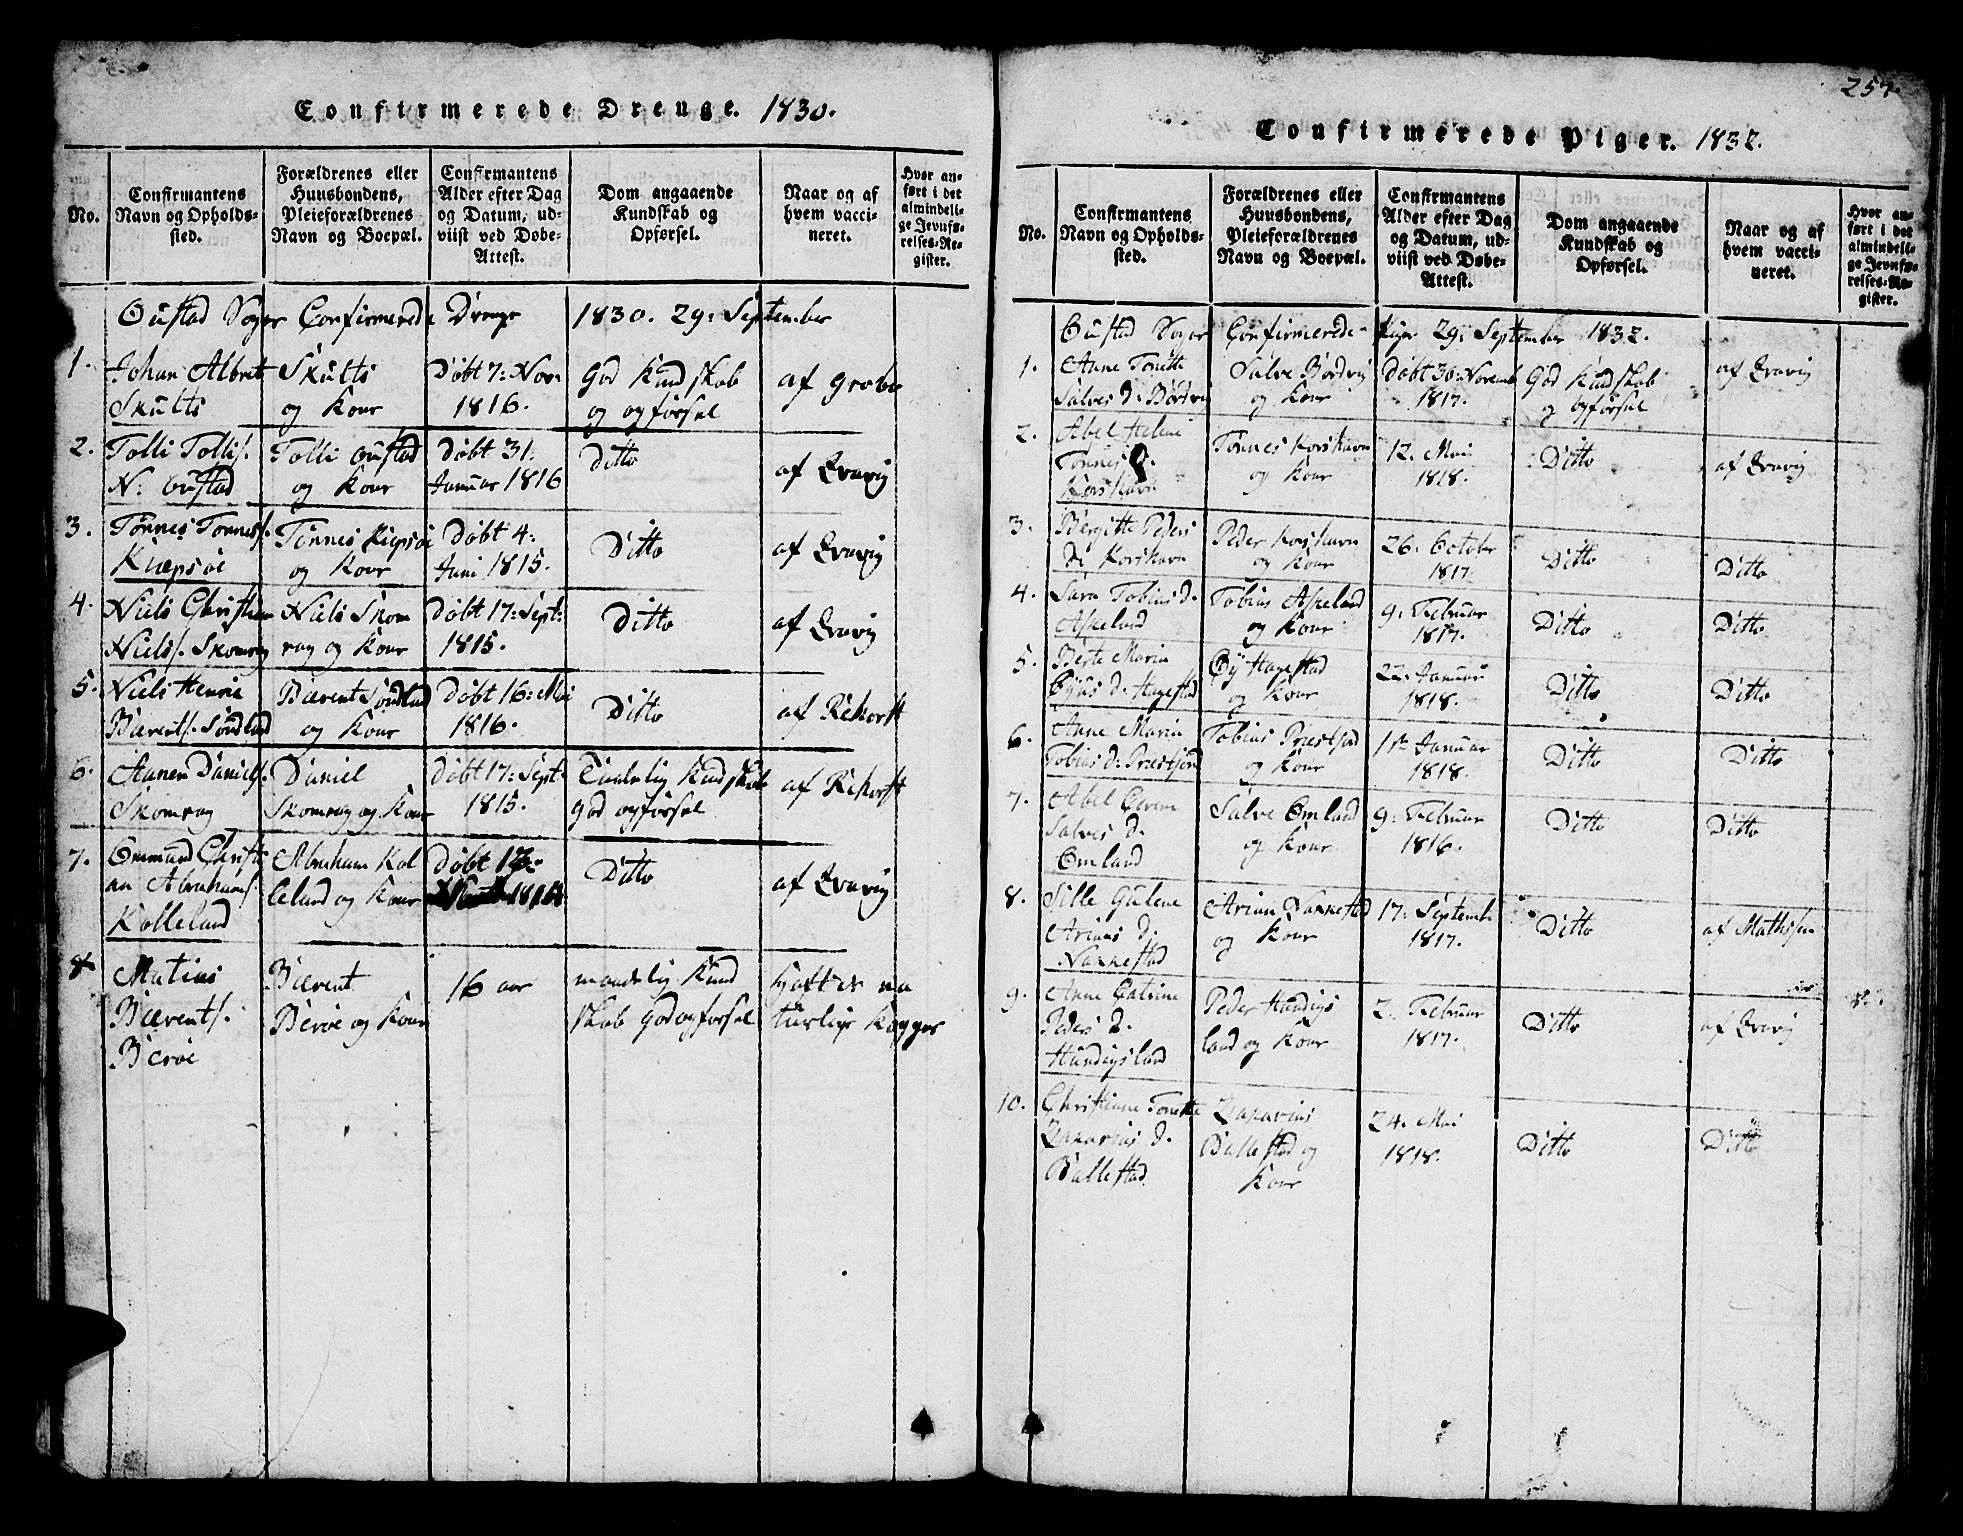 Confirmerede Drenge. 1830.
No.
Confirmantens Navn og Opholdssted.
Forældrenes eller Huusbondens, Pleieforældrenes Navn og Boepæl.
Confirmantens Alder efter Dag og Datum, udviist ved Døbe-Attest.
Dom angaaende Kundskab og Opførsel.
Naar og af hvem vaccineret.
Hvor anført i det almindelige Jevnførelses-Register.
Oustad Sogns Confirmerede Drenge 1830. 29: September
1. Johan Albret Skults
Skults og Kone
Døbt 7: Nov: 1816.
God Kundskab og opførsel
af Grobe
2. Tolli Tollis. N: Oustad
Tolli Oustad og Kone
Døbt 31: Januar 1816
Ditto
af Qvavig
3. Tønnes Tønnes. Kiæpsøe
Tønnes Kiepsøe og Kone
Døbt 4: Juni 1815.
Ditto
af Qvavig
4. Niels Christian Niels. Skomrag
Niels Skomrag og Kone
Døbt 17: Sept: 1815.
Ditto
af Qvavig
5. Niels Henric Bærents. Søndlad
Bærent Søndlad og Kone
Døbt 16: Mai 1816.
Ditto
af Rekorst
6. Aanen Daniels. Skomrag
Daniel Skomrag og Kone
Døbt 17: Sept: 1815.
Taalelig Kundskab God opførsel
af Rekorst
7. Ommund Christian Abrahams. Kolleland
Abraham Kolleland og Kone
Døbt
Ditto
af Qvavig
8. Matius Bærents. Berøe
Bærent Berøe og Kone
16 aar
maadelig Kundskab God opførsel
Haft de naturlige Kopper
254.
Confirmerede Piger. 1832.
No.
Confirmantens Navn og Opholdssted.
Forældrenes eller Huusbondens, Pleieforældrenes Navn og Boepæl.
Confirmantens Alder efter Dag og Datum, udviist ved Døbe-Attest.
Dom angaaende Kundskab og Opførsel.
Naar og af hvem vaccineret.
Hvor anført i det almindelige Jevnførelses-Register.
Oustad Sogns Confirmerede Piger 29: September 1832.
1. Anne Tonette Salves D: Bördvig
Salve Bördvig og Kone
Døbt 30: Novemb 1817.
God Kundskab og opførsel
af Qvavig
2. Abel Helene Tønnes D. Korshavn
Tønnes Korshavn og Kone
12. Mai 1818.
Ditto
af Qvavig
3. Bergitte Peders D: Korshavn
Peder Korshavn og Kone
26: October 1817
Ditto
Ditto
4. Sara Tobias D. Askeland
Tobias Askeland og Kone
9: Februar 1817.
Ditto
Ditto
5. Berte Maria Øÿus D. Hagestad
Øÿ Hagestad og Kone
22. Januar 1818.
Ditto
Ditto
6. Anne Maria Tobias D: Præstjord
Tobias Præstjord og Kone
1te Januar 1818.
Ditto
Ditto
7. Abel Serine Salves D. Omland
Salve Omland og Kone
9: Februar 1816.
Ditto
Ditto
8. Sille Gulene Arians D. Nakkestad
Arian Nakkestad og Kone
17: Septemb 1817.
Ditto
af Mathisen
9. Anne Catrine Peders D. Hundigsland
Peder Hundigsland og Kone
2. Februar 1817.
Ditto
af Qvavig
10. Christiane Tonette Zakarias D. Ballestad
Zakarias Ballestad og Kone
24. Mai 1818.
Ditto
Ditto